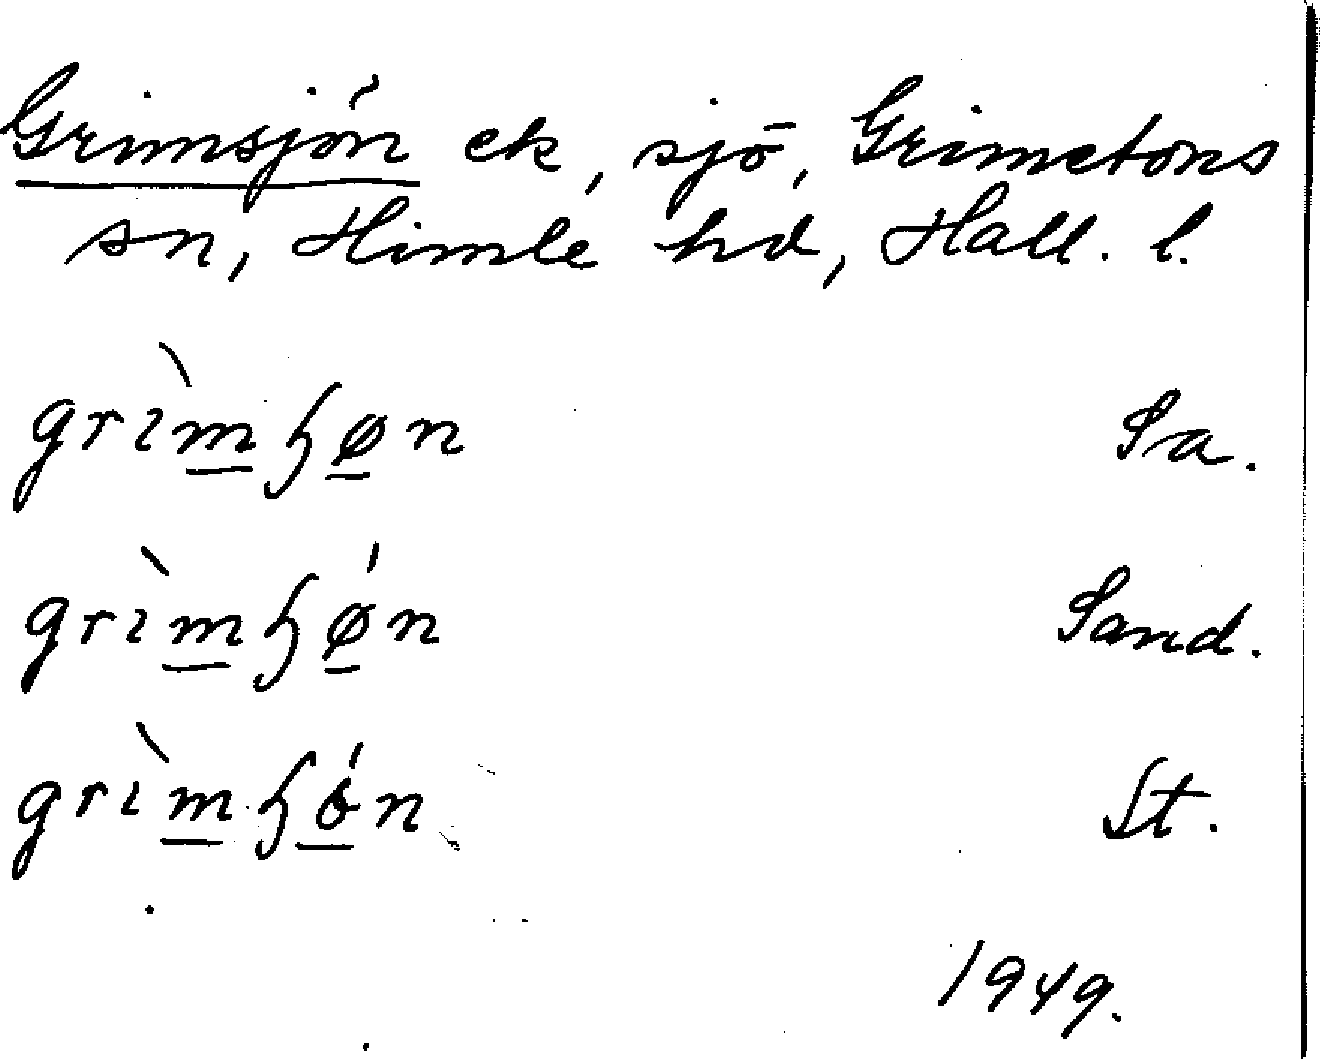 Grimsjön ek, sjö, Grimetons
sn, Himle hd, Hall. l.
grìmɧøn Sa.
grìmɧǿn Sand.
grìmɧǿn St.
1949.